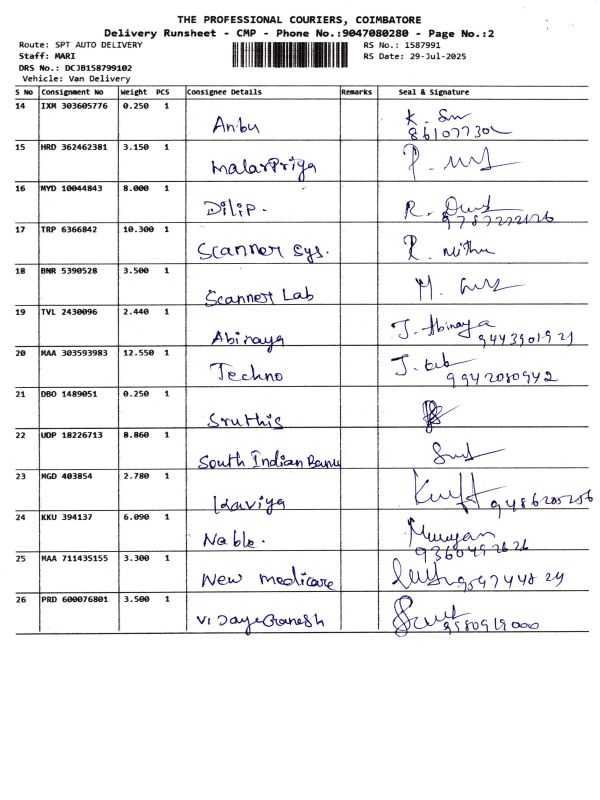 THE PROFESSIONAL COURIERS, COIMBATORE
Delivery Runsheet - CMP - Phone No.:9047080280 - Page No.:2
Route: SPT AUTO DELIVERY RS No.: 1587991
Staff: MARI RS Date: 29-Jul-2025
DRS No.: DCJB158799102
Vehicle: Van Delivery
S No Consignment No Weight PCS Consignee Details Remarks Seal & Signature
14 IXM 303605776 0.250 1
Anbu K.
15 HRD 362462381 3.150 1
MalarPriya P.
16 MYD 10044843 8.000 1
Dilip. R.
17 TRP 6366842 10.300 1
Scanner Sys. R. Mithu
18 BNR 5390528 3.500 1
Scanner Lab M.
19 TVL 2430096 2.440 1
Abinaya J. Abinaya
9443901921
20 MAA 303593983 12.550 1
Techno J.
9942080942
21 DBO 1489051 0.250 1
Sruthis
22 UDP 18226713 8.860 1
South Indian Bank
23 MGD 403854 2.780 1
Kaviya 9486205256
24 KKU 394137 6.090 1
Noble. Murugan
9360492626
25 MAA 711435155 3.300 1
New medicare
26 PRD 600076801 3.500 1
VijayeGanesh